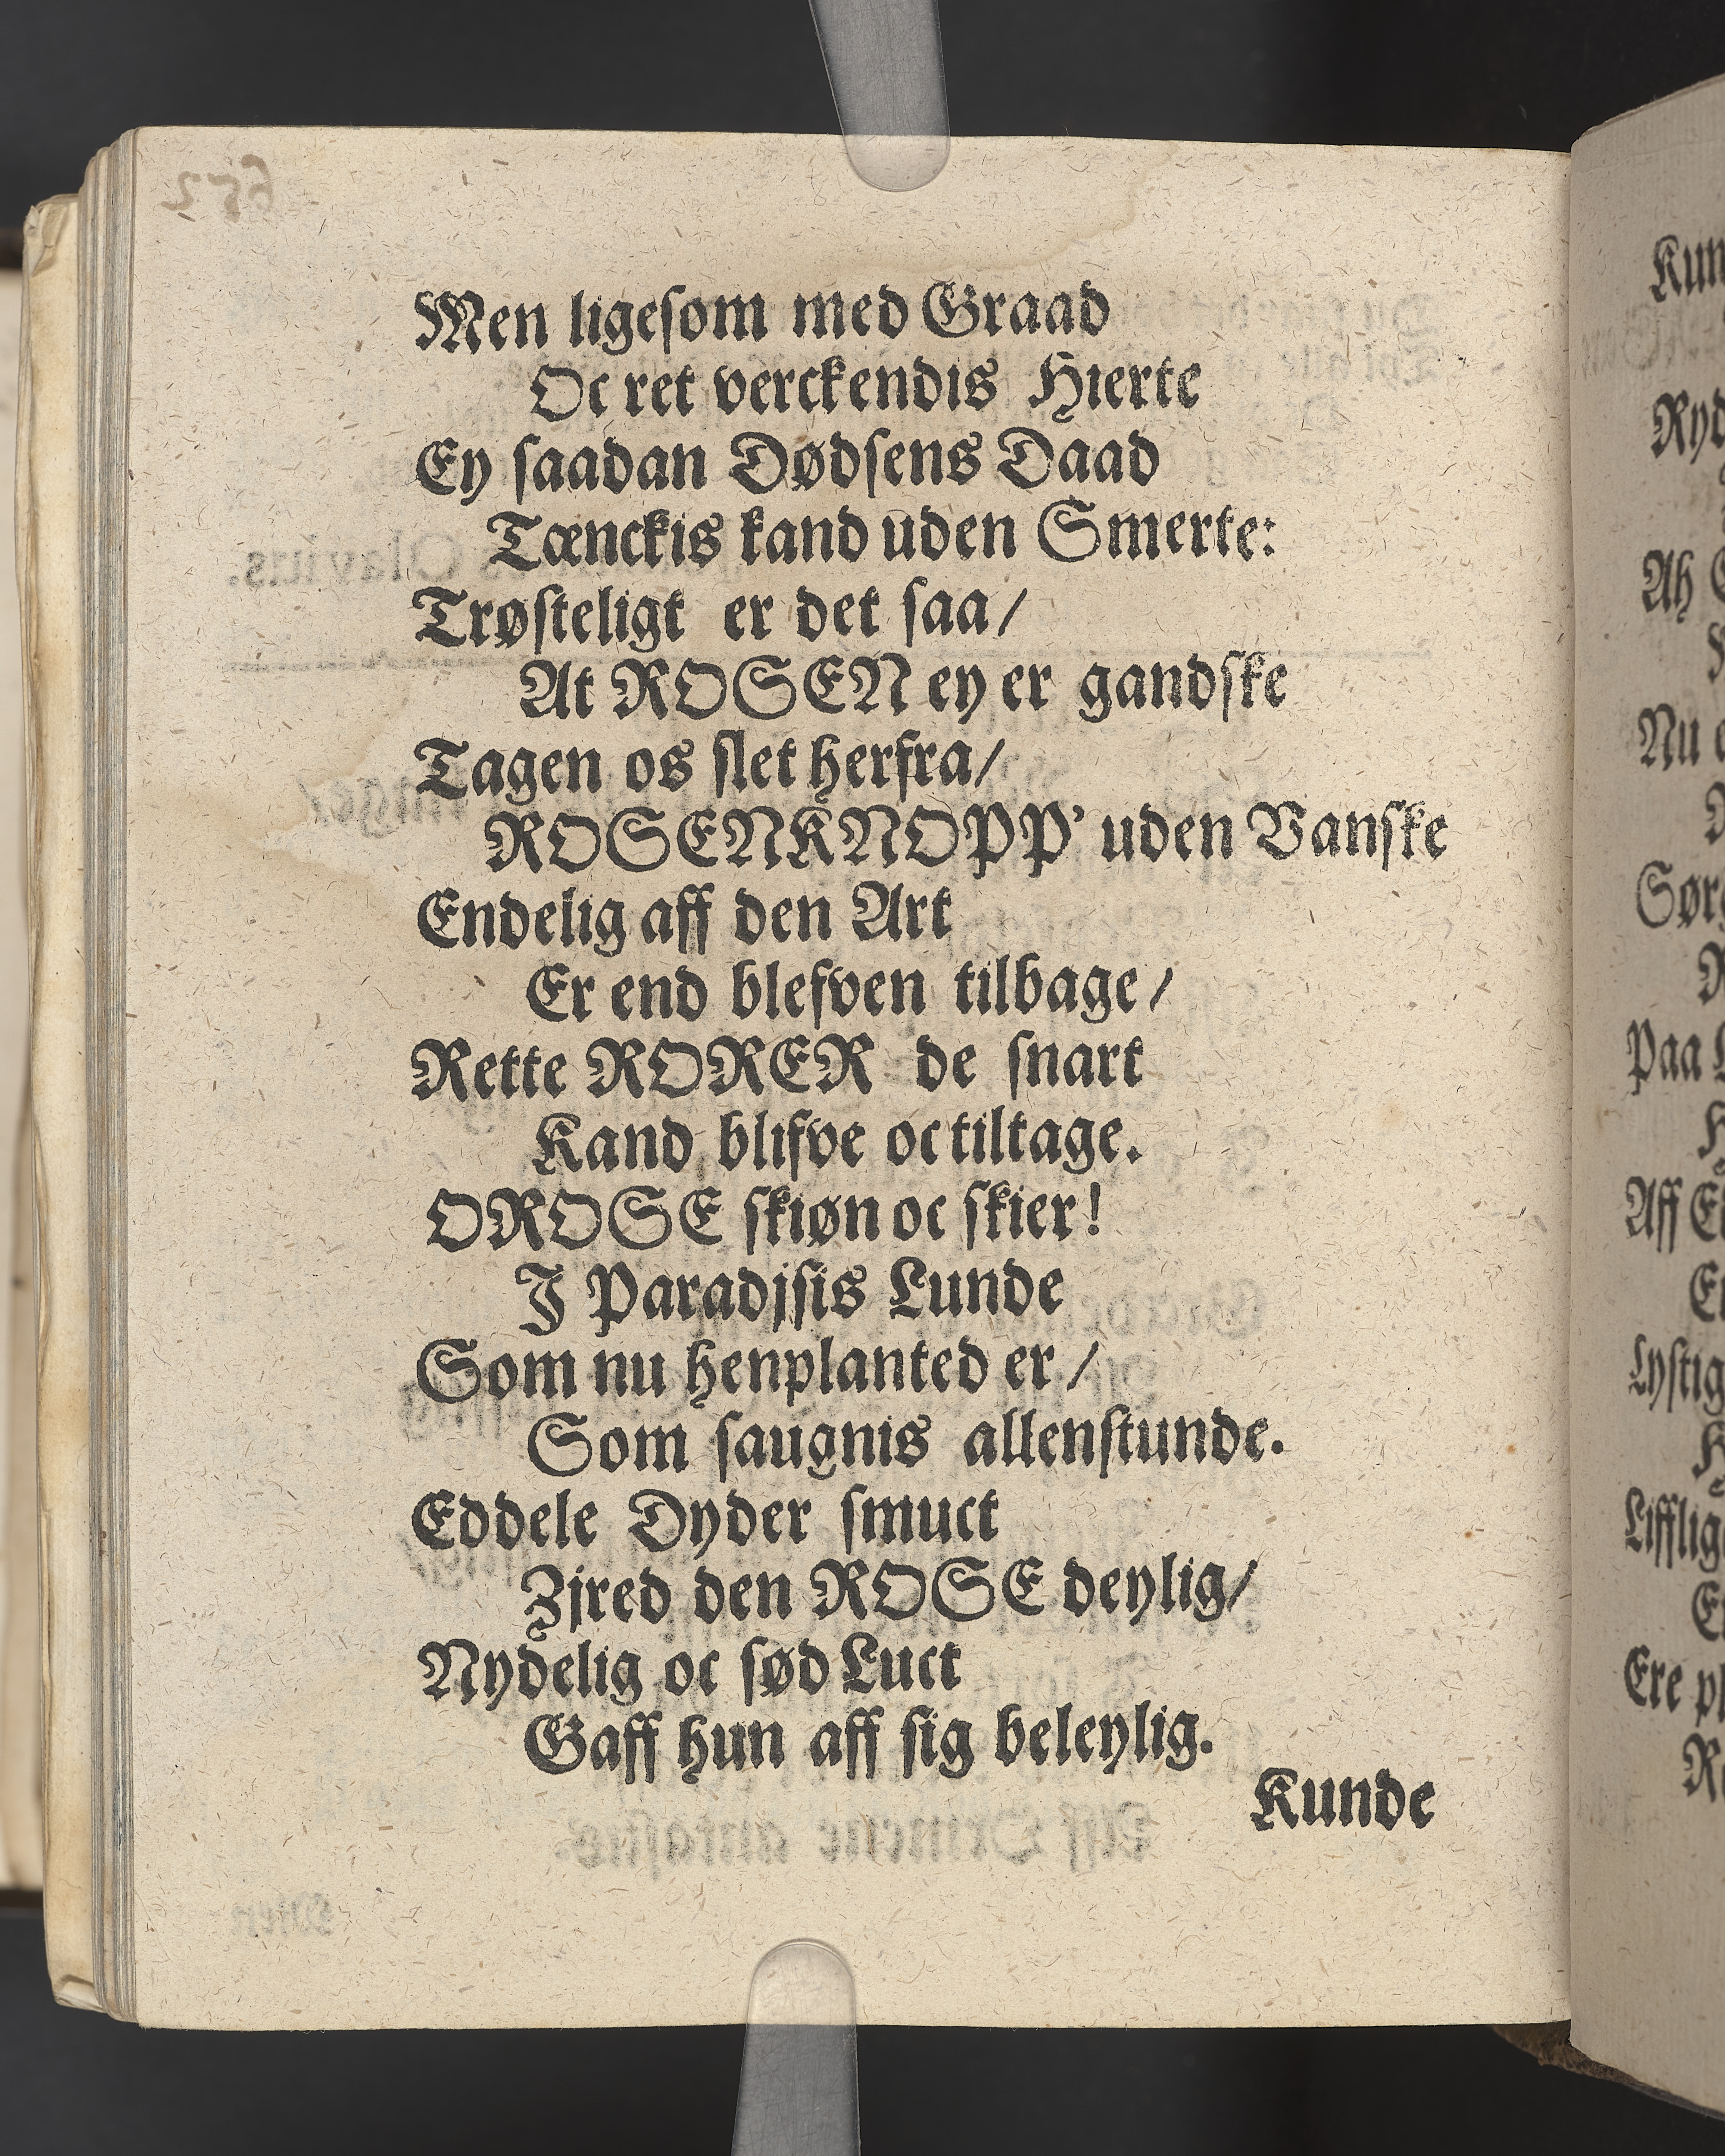 Men ligesom med Graad
Oc ret verckendis Hierte
Ey saadan Dødsens Daad
Tænckis kand uden Smerte:
Trøsteligt er det saa/
At ROSEN ey er gandske
Tagen os slet herfra/
ROSENKNOPP' uden Vanske
Endelig aff den Art
Er end blefven tilbage/
Rette RORER de snart
Kand blifve oc tiltage.
O ROSE skiøn oc skier!
I Paradjsis Lunde
Som nu henplanted er/
Som saugnis allenstunde.
Eddele Dyder smuct
Zjred den ROSE deylig/
Nydelig oc sød Luct
Gaff hun aff sig beleylig.
Kunde
Kun
Ryd
Ah
Nu
Sør
Paa
Aff
Lystig
Lifflig
Ere